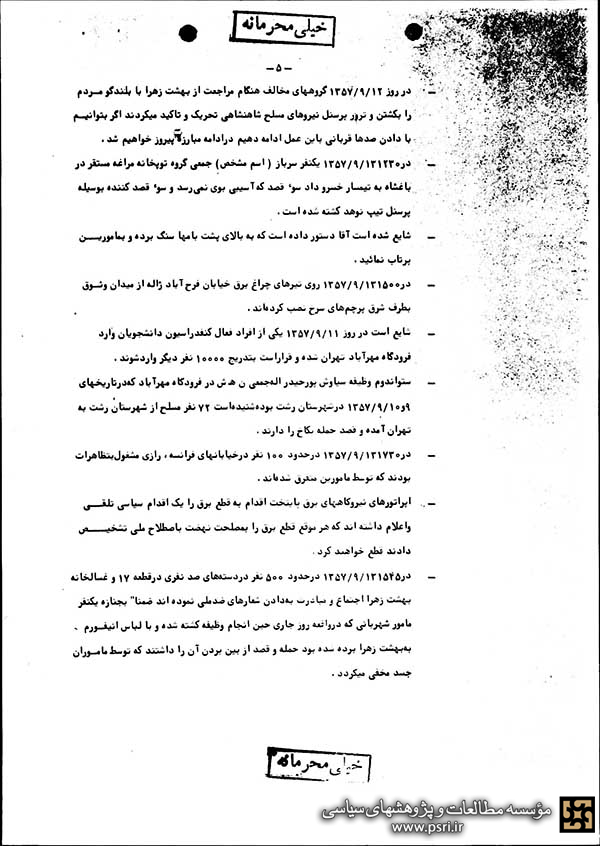 خیلی محرمانه
-۵-
- در روز ۱۳۵۷/۹/۱۲ گروههای مخالف هنگام مراجعت از بهشت زهرا با بلندگو مردم
را بکشتن و ترور پرسنل نیروهای مسلح شاهنشاهی تحریک و تاکید میکردند اگر بتوانیم
با دادن صدها قربانی باین عمل ادامه دهیم درادامه مبارزه پیروز خواهیم شد .
- در۱۳۵۷/۹/۱۳۱۲۳۰ یکنفر سرباز ( اسم مشخص) جمعی گروه توپخانه مراغه مستقر در
باغشاه به تیمسار خسرو داد سوء قصد که آسیبی بوی نمی‌رسد و سوء قصد کننده بوسیله
پرسنل تیپ نوهد کشته شده است .
- شایع شده است آقا دستور داده است که به بالای پشت بامها سنگ برده و بمامورین
پرتاب نمائید .
- در۱۳۵۷/۹/۱۳۱۵۰۰ روی تیرهای چراغ برق خیابان فرح آباد ژاله از میدان وثوق
بطرف شرق پرچم‌های سرخ نصب کرده‌اند .
- شایع است در روز ۱۳۵۷/۹/۱۱ یکی از افراد فعال کنفدراسیون دانشجویان وارد
فرودگاه مهرآباد تهران شده و قراراست بتدریج ۱۰۰۰۰ نفر دیگر واردشوند .
- ستواندوم وظیفه سیاوش پورحیدر اله‌جمعی ن ه ش در فرودگاه مهرآباد که‌درتاریخهای
۹و۱۳۵۷/۹/۱۰ درشهرستان رشت بوده‌شنیده‌است ۷۲ نفر مسلح از شهرستان رشت به
تهران آمده و قصد حمله بکاخ را دارند .
- در۱۳۵۷/۹/۱۳۱۷۳۰ درحدود ۱۰۰ نفر درخیابانهای فرانسه ، رازی مشغول‌بتظاهرات
بودند که توسط مامورین متفرق شده‌اند .
- اپراتورهای نیروگاههای برق پایتخت اقدام به قطع برق را یک اقدام سیاسی تلقی
واعلام داشته اند که هر موقع قطع برق را بمصلحت نهضت باصطلاح ملی تشخیص
دادند قطع خواهند کرد .
- در۱۳۵۷/۹/۱۳۱۵۴۵ درحدود ۵۰۰ نفر دردسته‌های صد نفری درقطعه ۱۷ و غسالخانه
بهشت زهرا اجتماع و مبادرت به‌دادن شعارهای ضدملی نموده اند ضمنا" بجنازه یکنفر
مامور شهربانی که درواقعه روز جاری حین انجام وظیفه کشته شده و با لباس انیفورم
به‌بهشت زهرا برده شده بود حمله و قصد از بین بردن آن را داشتند که توسط ماموران
جسد مخفی میگردد .
خیلی محرمانه
مؤسسه مطالعات و پژوهشهای سیاسی
www.psri.ir